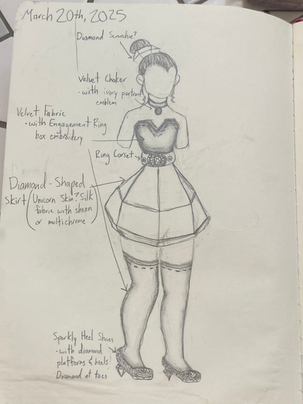 March 20th, 2025
Diamond Scrunchie?
Velvet Choker
- with ivory
emblem
Velvet Fabric
- with Engagement Ring
box embroidery
Ring Corset
Diamond-Shaped
Skirt
Unicorn Skin? Silk
fabric with sheen
or multichrome
Sparkly Heel Shoes
- with diamond
platforms & heels
Diamond at toes